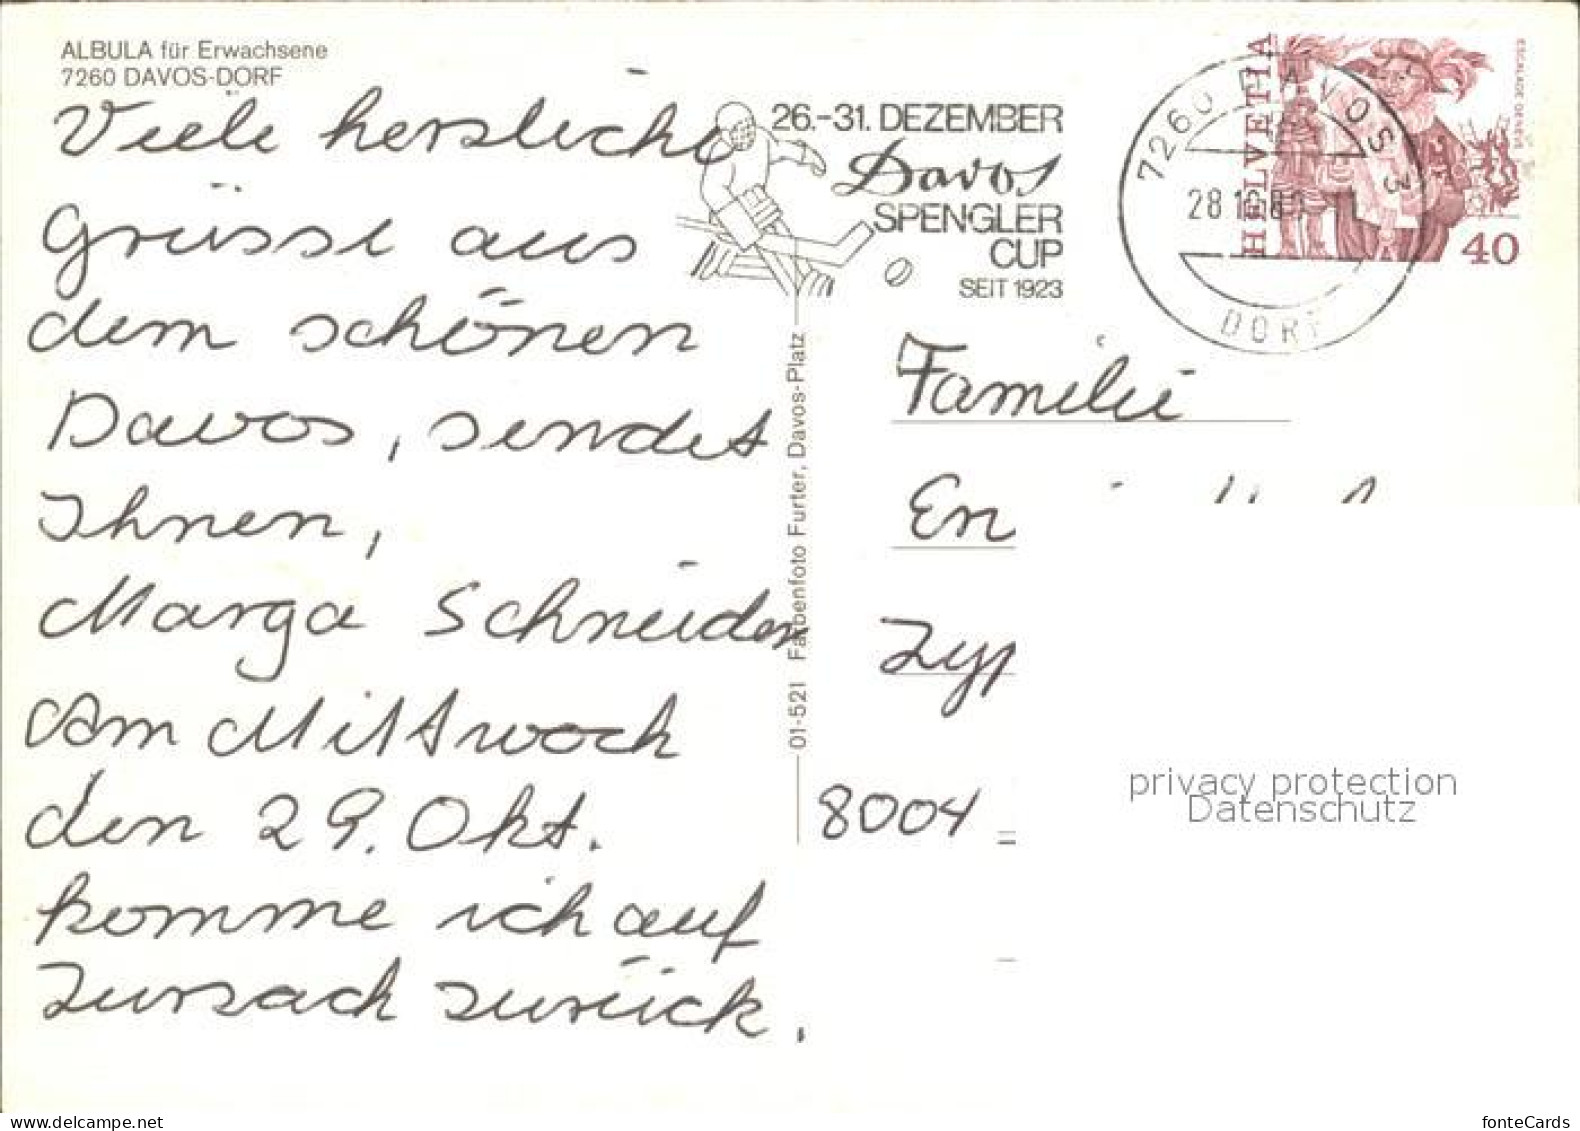 ALBULA für Erwachsene
7260 DAVOS-DORF
Viele herzliche
Grüsse aus
dem schönen
Davos, sendet
Ihnen,
Marga Schneider
Am Mittwoch
den 29. Okt.
komme ich auf
Zurzach zurück.
26.-31. DEZEMBER
Davos
SPENGLER
CUP
SEIT 1923
7260 DAVOS 3
DORF
HELVETIA
ESCALADE GENEVE
40
01-521 Farbenfoto Furter, Davos-Platz
Familie
8004
privacy protection
Datenschutz
https://www.delcampe.net
fonteCards